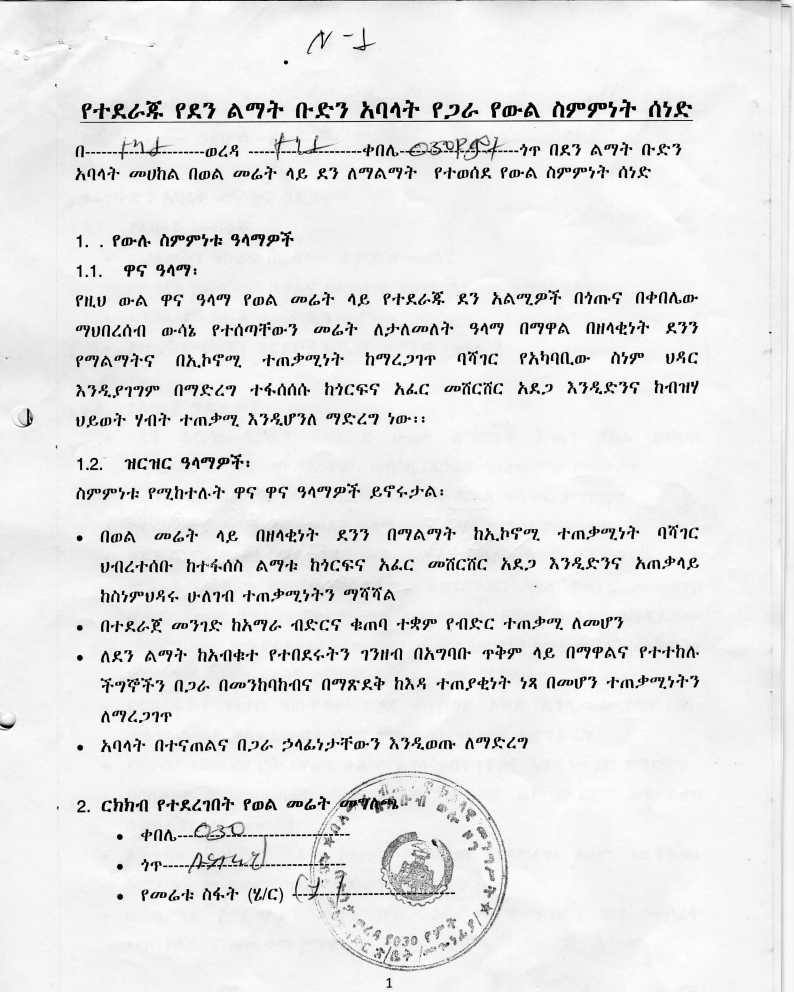 የተደራጁ የደን ልማት ቡድን አባላት የጋራ የውል ስምምነት ሰነድ
በ---------------------ወረዳ ---------------------ቀበሌ---------------------ጎጥ በደን ልማት ቡድን
አባላት መሀከል በወል መሬት ላይ ደን ለማልማት የተወሰደ የውል ስምምነት ሰነድ
1. . የውሉ ስምምነቱ ዓላማዎች
1.1. ዋና ዓላማ፡
የዚህ ውል ዋና ዓላማ የወል መሬት ላይ የተደራጁ ደን አልሚዎች በጎጡና በቀበሌው
ማህበረሰብ ውሳኔ የተሰጣቸውን መሬት ለታለመለት ዓላማ በማዋል በዘላቂነት ደንን
የማልማትና በኢኮኖሚ ተጠቃሚነት ከማረጋገጥ ባሻገር የአካባቢው ስነም ህዳር
እንዲያገግም በማድረግ ተፋሰሰሱ ከጎርፍና አፈር መሸርሸር አደጋ እንዲድንና ከብዝሃ
ህይወት ሃብት ተጠቃሚ እንዲሆንለ ማድረግ ነው፡፡
1.2. ዝርዝር ዓላማዎች፡
ስምምነቱ የሚከተሉት ዋና ዋና ዓላማዎች ይኖሩታል፡
• በወል መሬት ላይ በዘላቂነት ደንን በማልማት ከኢኮኖሚ ተጠቃሚነት ባሻገር
ህብረተሰቡ ከተፋሰስ ልማቱ ከጎርፍና አፈር መሸርሸር አደጋ እንዲድንና አጠቃላይ
ከስነምህዳሩ ሁለገብ ተጠቃሚነትን ማሻሻል
• በተደራጀ መንገድ ከአማራ ብድርና ቁጠባ ተቋም የብድር ተጠቃሚ ለመሆን
• ለደን ልማት ከአብቁተ የተበደሩትን ገንዘብ በአግባቡ ጥቅም ላይ በማዋልና የተተከሉ
ችግኞችን በጋራ በመንከባከብና በማጽደቅ ከእዳ ተጠያቂነት ነጻ በመሆን ተጠቃሚነትን
ለማረጋገጥ
• አባላት በተናጠልና በጋራ ኃላፊነታቸውን እንዲወጡ ለማድረግ
2. ርክክብ የተደረገበት የወል መሬት መግለጫ
• ቀበሌ---030---------------------
• ጎጥ---------------------
• የመሬቱ ስፋት (ሄ/ር) ---------------------
1